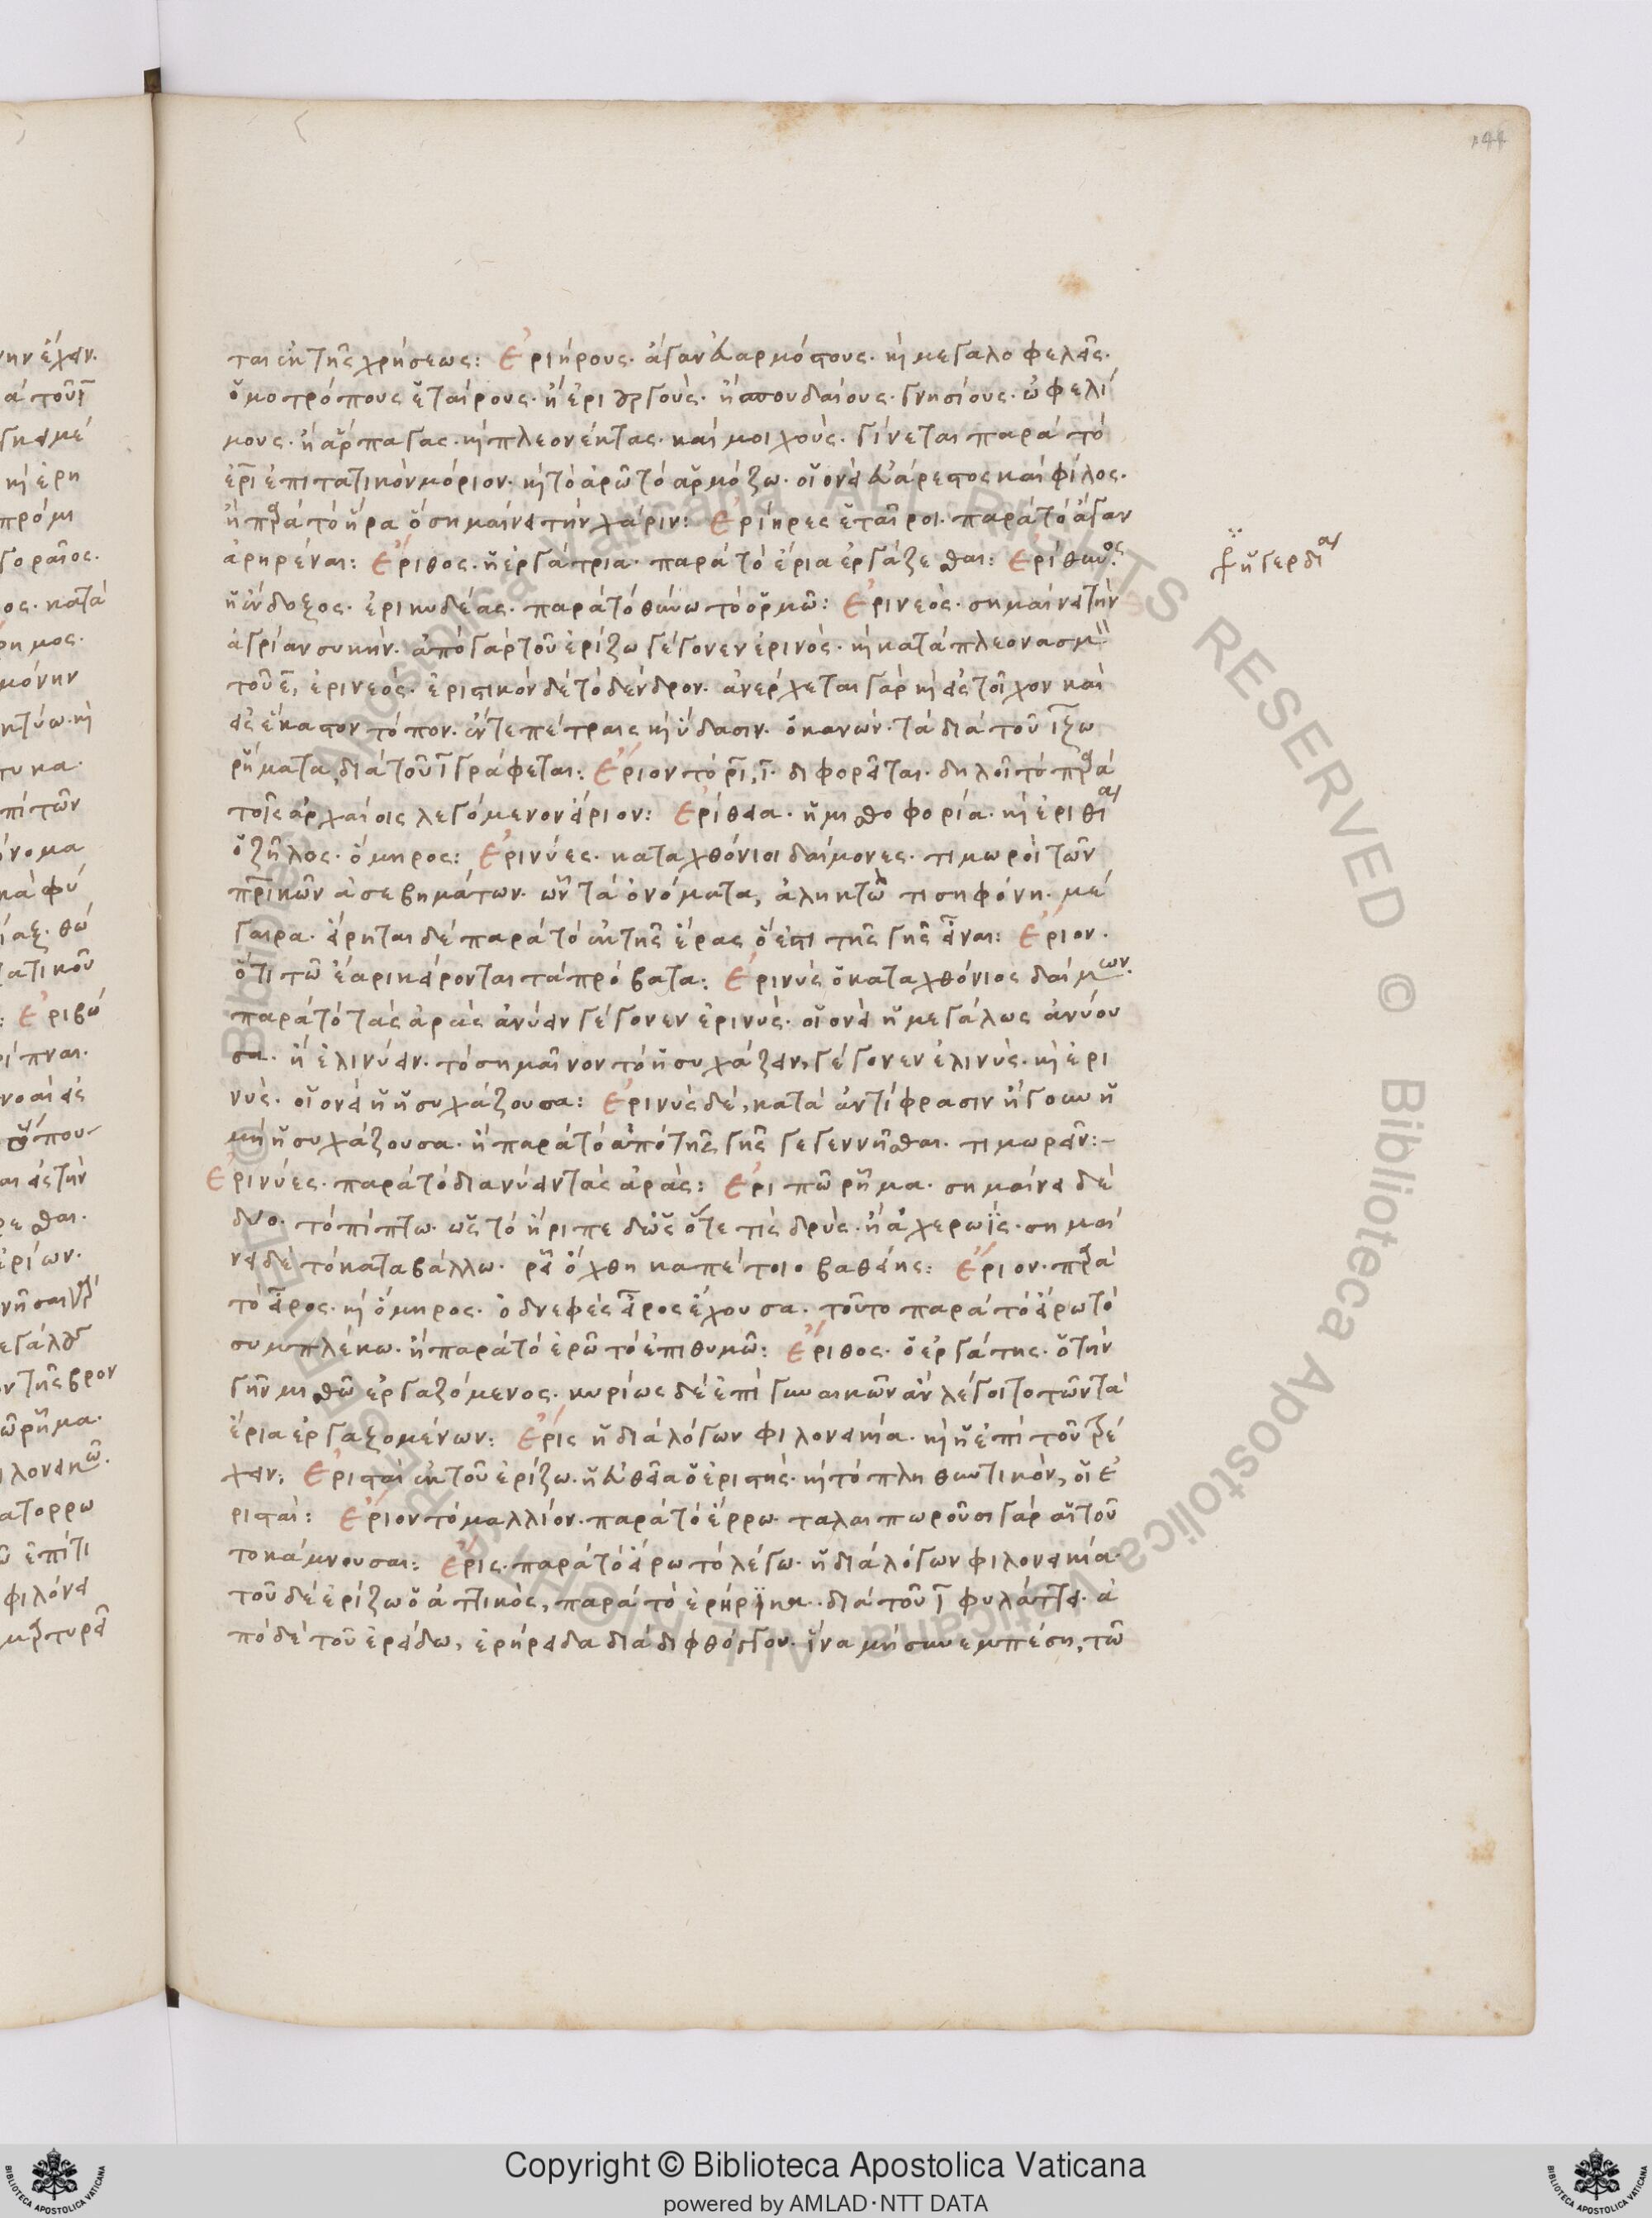 ται ἐκ τῆς χρήσεως: Ἐριήρους. ἄγαν εὐαρμόστους. κὴ μεγαλοφελεῖς.
ὁμοτρόπους ἑταίρους. ἢ ἐριουργούς. ἢ σπουδαίους. γνησίους. ὠφελί
μους. ἢ ἅρπαγας. κὴ πλεονέκτας. καὶ μοιχούς. γίνεται παρὰ τὸ
ἐρι ἐπιτατικὸν μόριον. κὴ τὸ ἀρῶ τὸ ἁρμόζω. οἱονεὶ εὐάρεστος καὶ φίλος.
ἢ παρὰ τὸ ἦρα ὃ σημαίνει τὴν χάριν: Ἐρίηρες ἑταῖροι. παρὰ τὸ ἄγαν
ἀρηρέναι: Ἔριθος. ἡ ἐργάτρια. παρὰ τὸ ἔρια ἐργάζεσθαι: Ἐρίθυνος.
ἡ ἔνδοξος. ἐρικυδέας. παρὰ τὸ θύνω τὸ ὁρμῶ: Ἐρινεὸς. σημαίνει τὴν
ἀγρίαν συκὴν. ἀπὸ γὰρ τοῦ ἐρίζω γέγονεν ἐρινὸς. κὴ κατὰ πλεονασμ
τοῦ ε, ἐρινεός. ἐριστικὸν δὲ τὸ δένδρον. ἀνέρχεται γὰρ κὴ εἰς τοῖχον καὶ
εἰς ἕκαστον τόπον. ἔν τε πέτραις κὴ ὕδασιν. ὁ κανών. τὰ διὰ τοῦ ιζω
ῥήματα διὰ τοῦ ι γράφεται: Ἔριον τὸ ρι, ι. διφορεῖται. δηλοῖ τὸ παρὰ
τοῖς ἀρχαίοις λεγόμενον εἴριον: Ἐρίθεια. ἡ μισθοφορία. κὴ ἐριθεία
ὁ ζῆλος. ὅμηρος: Ἐρινύες. καταχθόνιοι δαίμονες. τιμωροὶ τῶν
πατρικῶν ἀσεβημάτων. ὧν τὰ ὀνόματα, ἀληκτὼ τισηφόνη. μέ
γαιρα. εἴρηται δὲ παρὰ τὸ ἐκ τῆς ἔρας ὅ ἐστι τῆς γῆς εἶναι: Ἔριον.
ὅτι τῶ ἔαρι κείρονται τὰ πρόβατα: Ἐρινὺς ὁ καταχθόνιος δαίμων.
παρὰ τὸ τὰς ἀρὰς ἀνύειν γέγονεν ἐρινὺς. οἱονεὶ ἡ μεγάλως ἀνύου
σα. ἢ ἐλινύειν. τὸ σημαῖνον τὸ ἡσυχάζειν, γέγονεν ἐλινὺς. κὴ ἐρι
νὺς. οἱονεὶ ἡ ἡσυχάζουσα: Ἐρινὺς δὲ, κατὰ ἀντίφρασιν ἤγουν ἡ
μὴ ἡσυχάζουσα. ἢ παρὰ τὸ ἀπὸ τῆς γῆς γεγεννῆσθαι. τιμωρεῖν:–
Ἐρινύες. παρὰ τὸ διανύειν τὰς ἀρὰς: Ἐριπῶ ῥῆμα. σημαίνει δὲ
δύο. τὸ πίπτω. ὡς τὸ ἤριπε δ' ὡς ὅτε τὶς δρῦς. ἢ ἀχερωῒς. σημαί
νει δὲ τὸ καταβάλλω. ῥεῖ ὄχθη καπέτοιο βαθείης: Ἔριον. παρὰ
τὸ εἶρος. κὴ ὅμηρος. ἰοδνεφὲς εἶρος ἔχουσα. τοῦτο παρὰ τὸ εἴρω τὸ
συμπλέκω. ἢ παρὰ τὸ ἐρῶ τὸ ἐπιθυμῶ: Ἔριθος. ὁ ἐργάτης. ὁ τὴν
γῆν μισθῶ ἐργαζόμενος. κυρίως δὲ ἐπὶ γυναικῶν ἂν λέγοιτο τῶν τὰ
ἔρια ἐργαζομένων: Ἔρις ἡ διὰ λόγων φιλονεικία. κὴ ἡ ἐπὶ τοῦ τρέ
χειν: Ἐρισταὶ ἐκ τοῦ ἐρίζω. ἡ εὐθεῖα ὁ ἐριστής. κὴ τὸ πληθυντικὸν, οἱ ἐ
ρισταὶ: Ἔριον τὸ μαλλίον. παρὰ τὸ ἔρρω. ταλαιπωροῦσι γὰρ αἱ τοῦ
το κάμνουσαι: Ἔρις. παρὰ τὸ εἴρω τὸ λέγω. ἡ διὰ λόγων φιλονεικία.
τοῦ δὲ ἐρίζω ὁ ἀττικὸς, παρὰ τὸ ἐρήριικα. διὰ τοῦ ι φυλάττει. ἀ
πὸ δὲ τοῦ ἐρείδω, ἐρήρειδα διὰ διφθόγγου. ἵνα μὴ συνεμπέση, τῶ
ἡ γερδία